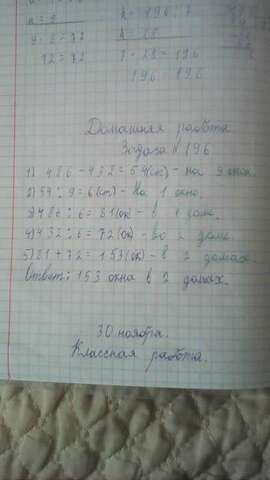 9·8=72
72=72
7·28=196
196=196
Домашняя работа
Задача №196
1) 486-432=54(ст)-на 9 окон.
2) 54:9=6(ст)-На 1 окно.
3) 486:6=81(ок)-в 1 доме.
4) 432:6=72(ок)-во 2 доме.
5) 81+72=153(ок)-в 2 домах.
Ответ: 153 окна в 2 домах.
30 ноября.
Классная работа.